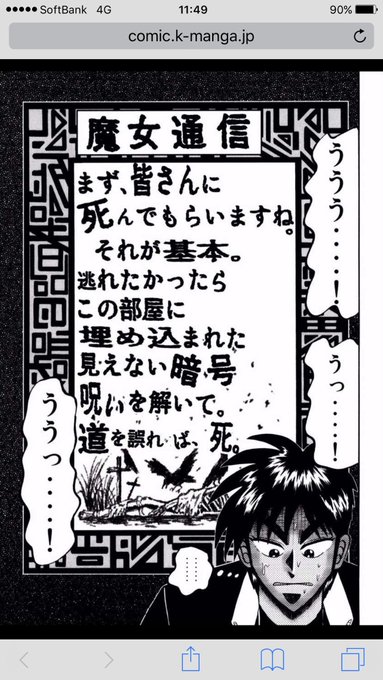 SoftBank 4G 11:49 90%
comic.k-manga.jp
魔女通信
まず、皆さんに
死んでもらいますね。
それが基本。
逃れたかったら
この部屋に
埋め込まれた
見えない暗号
呪いを解いて。
道を誤れば、死。
ううう‥‥‥!
うっ‥‥‥!
ううっ‥‥‥!
‥‥‥